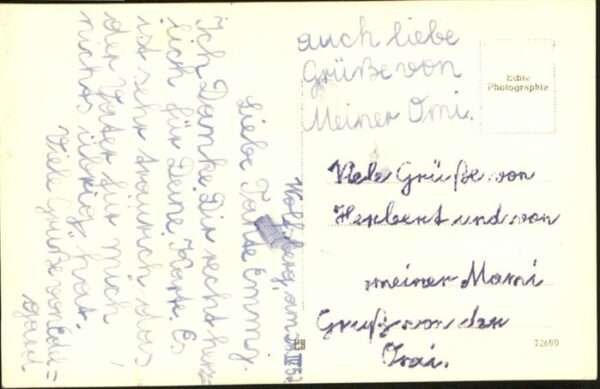 Wolfsberg, am
Liebe Tante Emmy.
Ich Danke Dir recht herz
lich für Deine Karte Es
ist sehr traurich das
der Vater für mich
nichts übrig hat.
Viele Grüße von Edel=
gard
auch liebe
Grüße von
Meiner Omi.
Echte
Photographie
Viele Grüße von
Herbert und von
meiner Mami
Gruß von der
72699